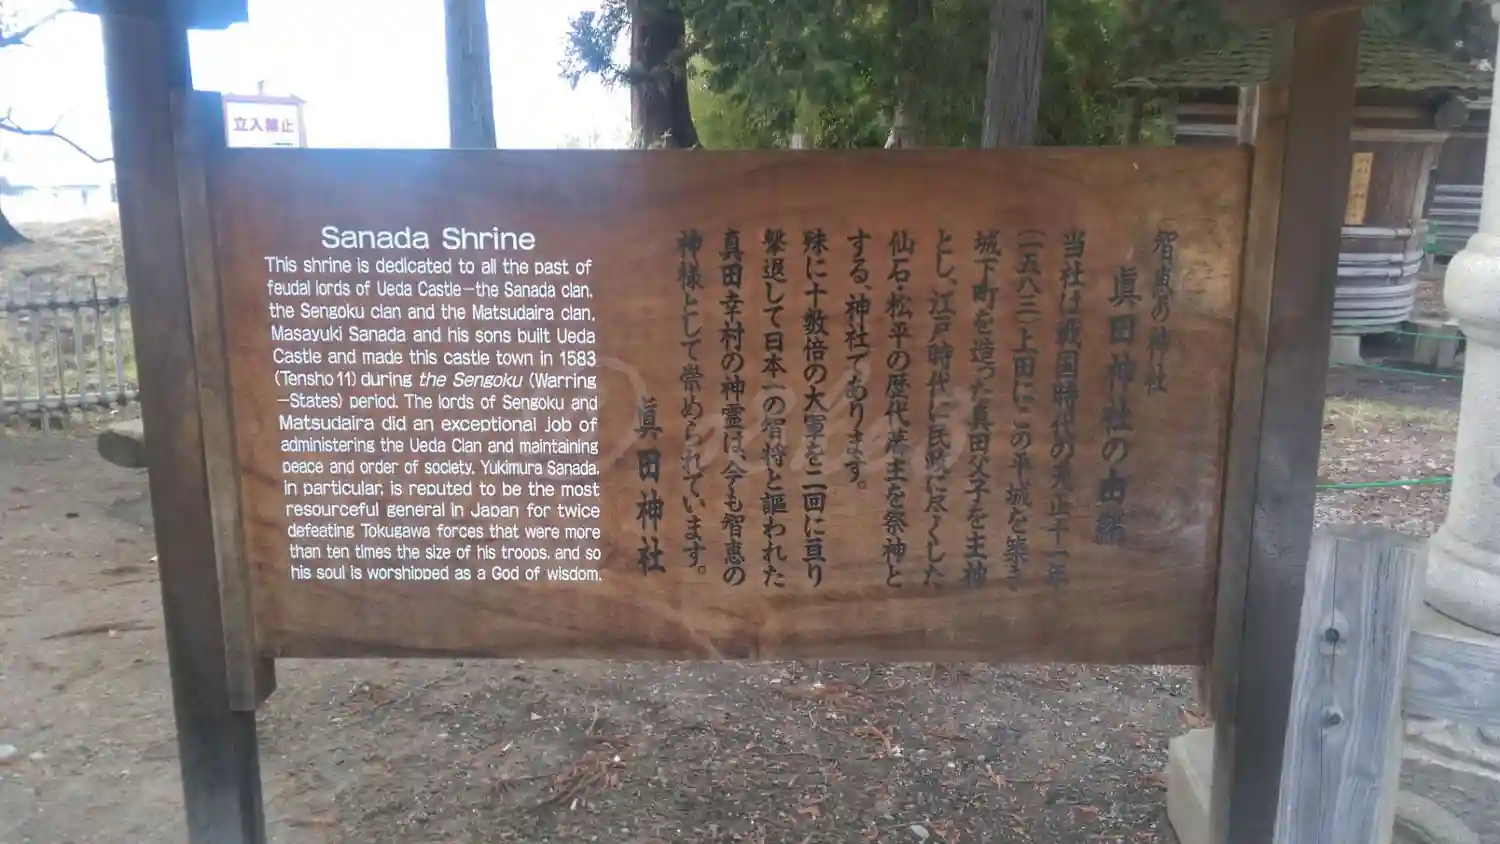 立入禁止
Sanada Shrine
This shrine is dedicated to all the past of
feudal lords of Ueda Castle—the Sanada clan,
the Sengoku clan and the Matsudaira clan.
Masayuki Sanada and his sons built Ueda
Castle and made this castle town in 1583
(Tensho 11) during the Sengoku (Warring
—States) period. The lords of Sengoku and
Matsudaira did an exceptional job of
administering the Ueda Clan and maintaining
peace and order of society. Yukimura Sanada,
in particular, is reputed to be the most
resourceful general in Japan for twice
defeating Tokugawa forces that were more
than ten times the size of his troops, and so
his soul is worshipped as a God of wisdom.
智恵の神社
眞田神社の由緒
当社は戦国時代の天正十一年
(一五八三)上田にこの平城を築き
城下町を造った真田父子を主神
とし、江戸時代に民政に尽くした
仙石・松平の歴代藩主を祭神と
する、神社であります。
殊に十数倍の大軍を二回に亘り
撃退して日本一の智将と謳われた
真田幸村の神霊は、今も智恵の
神様として崇められています。
眞田神社